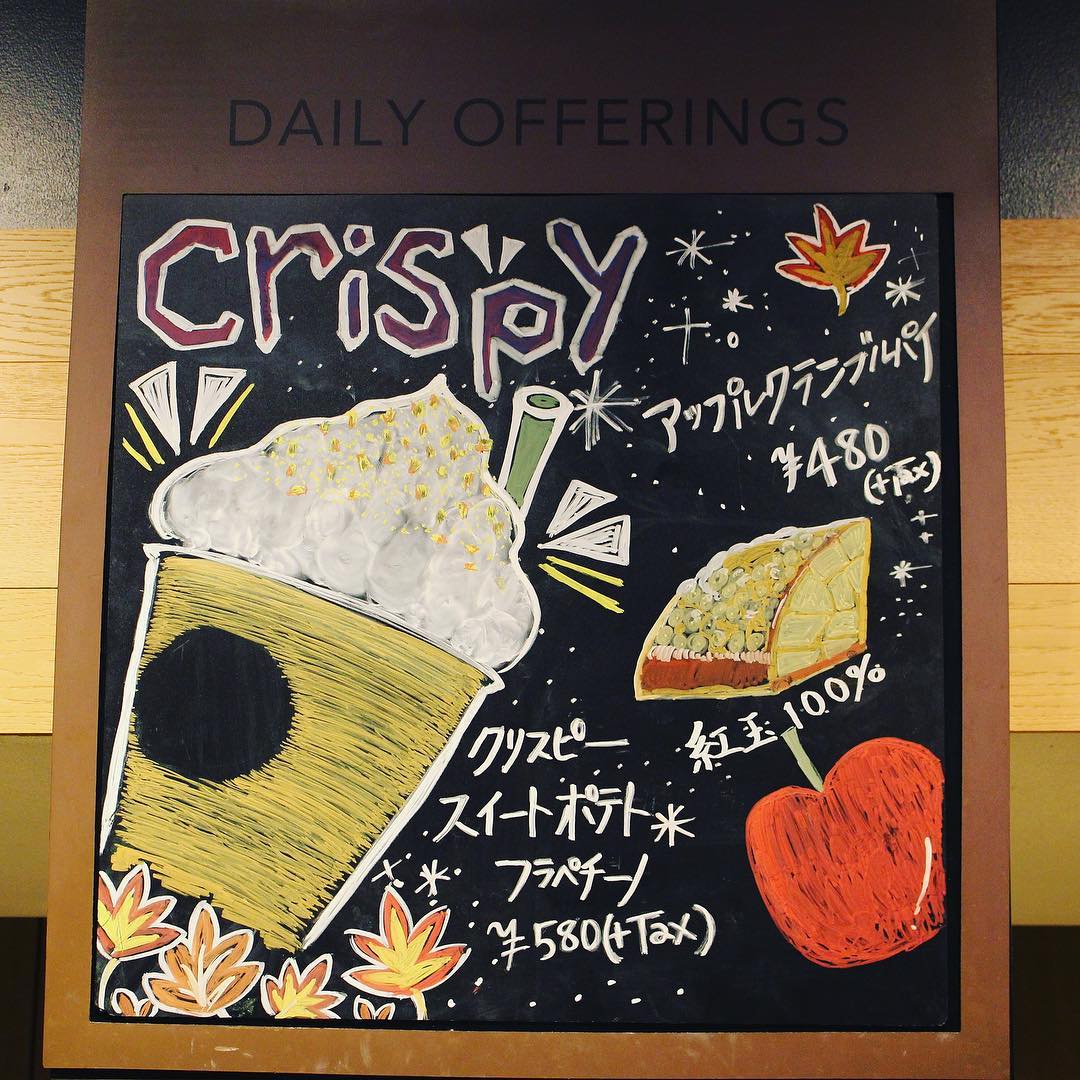 DAILY OFFERINGS
crispy
アップルクランブルパイ
¥480
(+Tax)
紅玉100%
クリスピー
スイートポテト
フラペチーノ
¥580(+Tax)